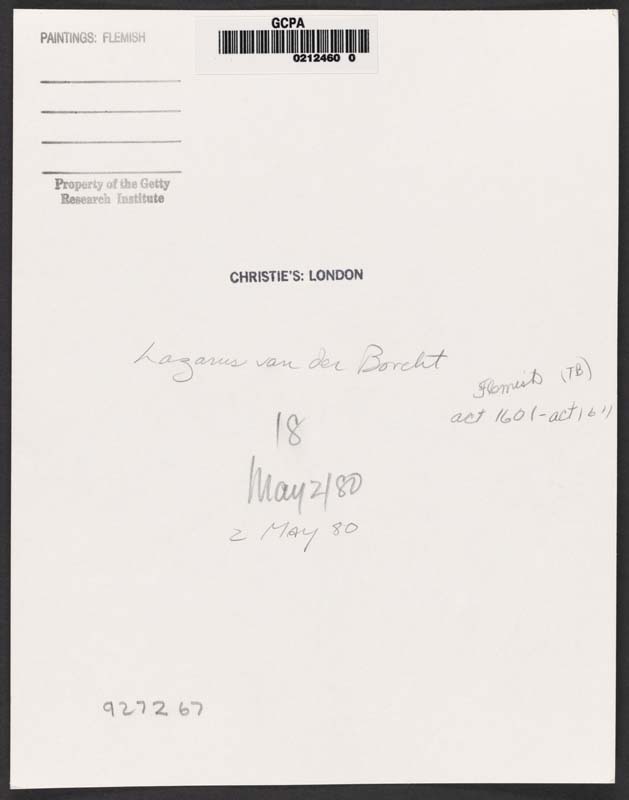 PAINTINGS: FLEMISH
GCPA
0212460 0
Property of the Getty
Research Institute
CHRISTIE'S: LONDON
Lazarus van der Borcht
Flemish (TB)
act 1601-act 1611
18
May 2/80
2 MAY 80
927267